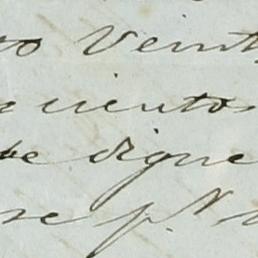 to Veint
cientos
se digne
se p. N